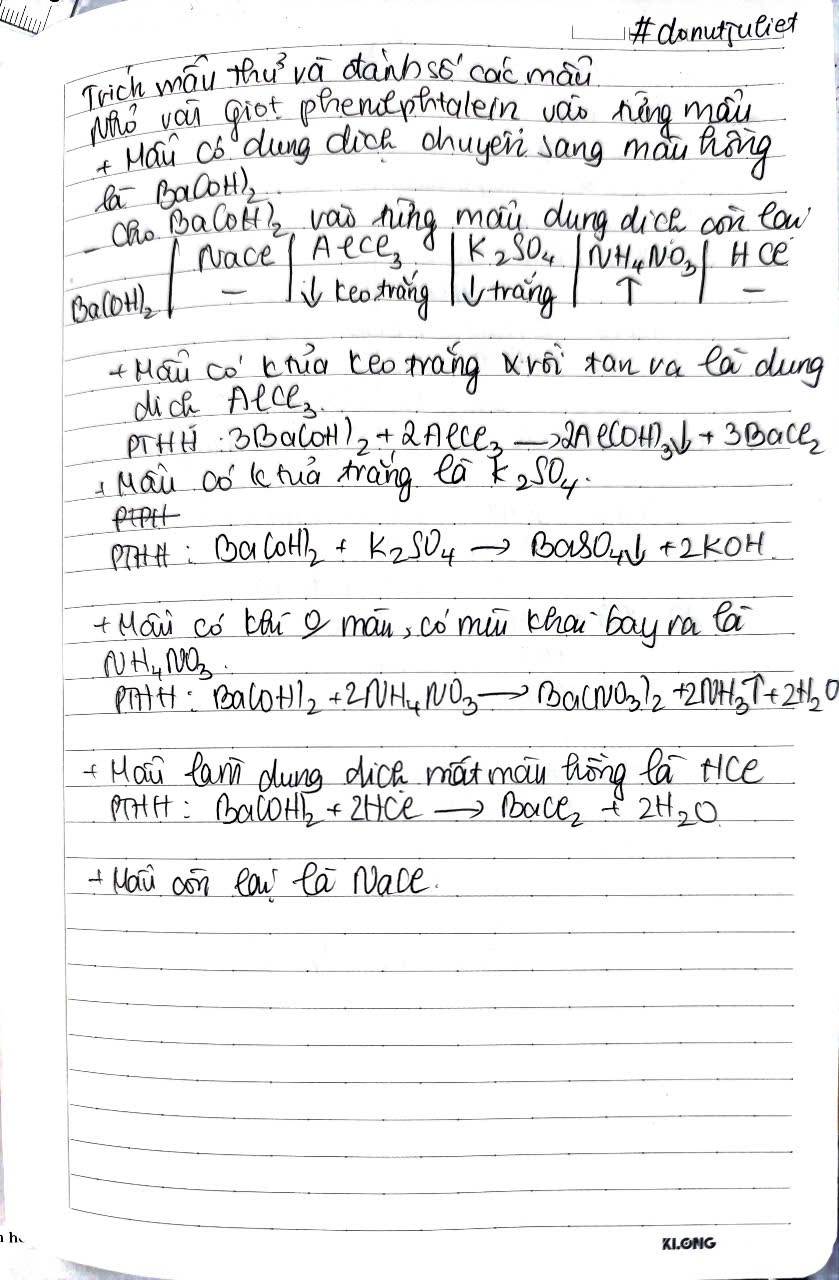 #donutjuliet
Trích mẫu thử và đánh số các mẫu
Nhỏ vài giọt phenolphtalein vào từng mẫu
+ Mẫu có dung dịch chuyển sang màu hồng
là Ba(OH)₂
- Cho Ba(OH)₂ vào từng mẫu dung dịch còn lại
NaCl | AlCl₃ | K₂SO₄ | NH₄NO₃ | HCl
Ba(OH)₂ | − | ↓ keo trắng | ↓ trắng | ↑ | −
+ Mẫu có ktủa keo trắng rồi tan ra là dung
dịch AlCl₃.
PTHH : 3Ba(OH)₂ + 2AlCl₃ → 2Al(OH)₃↓ + 3BaCl₂
+ Mẫu có ktủa trắng là K₂SO₄.
PTHH : Ba(OH)₂ + K₂SO₄ → BaSO₄↓ + 2KOH
+ Mẫu có khí 0 màu, có mùi khai bay ra là
NH₄NO₃.
PTHH : Ba(OH)₂ + 2NH₄NO₃ → Ba(NO₃)₂ + 2NH₃↑ + 2H₂O
+ Mẫu làm dung dịch mất màu hồng là HCl
PTHH : Ba(OH)₂ + 2HCl → BaCl₂ + 2H₂O
+ Mẫu còn lại là NaCl.
KLONG